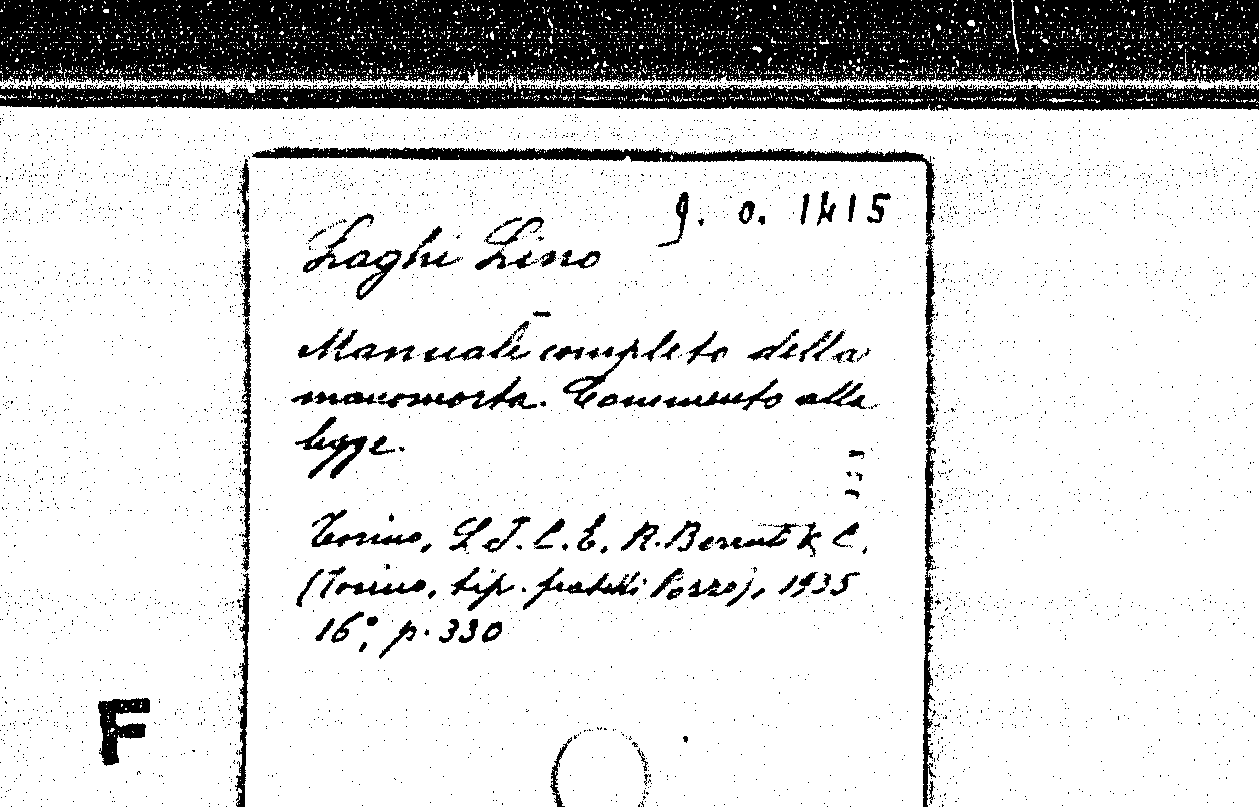 g. o. 1415
Laghi Lino
Manuale completo della
manomorta. Commento alla
legge.
Torino, L.T.C.E. R. & C.
(Torino, tip. fratelli Pozzo), 1935
16°, p. 330
F